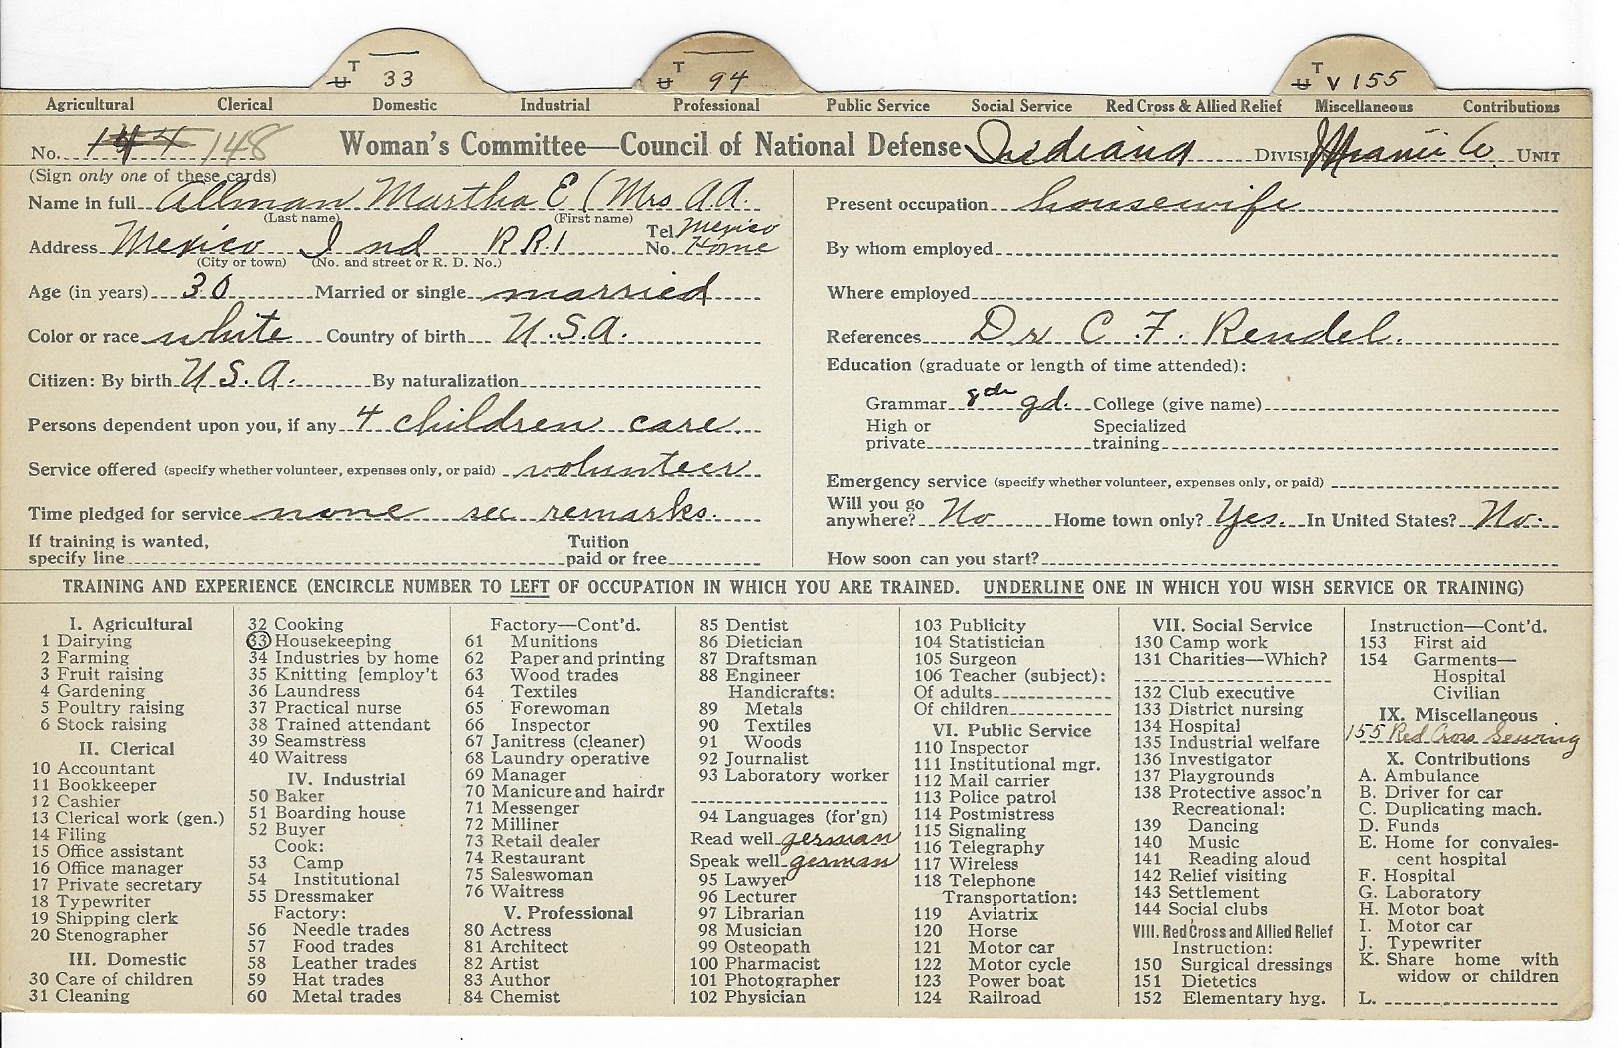 T U 33
T U 94
T U V 155
Agricultural Clerical Domestic Industrial Professional Public Service Social Service Red Cross & Allied Relief Miscellaneous Contributions
No. 144 148 Woman's Committee—Council of National Defense Indiana Division Miami Co. Unit
(Sign only one of these cards)
Name in full Allman Martha E (Mrs A.A.
(Last name) (First name)
Address Mexico Ind R.R.1 Tel. No. Mexico Home
(City or town) (No. and street or R. D. No.)
Age (in years) 30 Married or single married
Color or race white Country of birth U.S.A.
Citizen: By birth U.S.A. By naturalization
Persons dependent upon you, if any 4 children care
Service offered (specify whether volunteer, expenses only, or paid) volunteer
Time pledged for service none see remarks.
If training is wanted, specify line Tuition paid or free
Present occupation housewife
By whom employed
Where employed
References Dr C. F. Rendel.
Education (graduate or length of time attended):
Grammar 8th gd. College (give name)
High or private Specialized training
Emergency service (specify whether volunteer, expenses only, or paid)
Will you go anywhere? No Home town only? Yes. In United States? No.
How soon can you start?
TRAINING AND EXPERIENCE (ENCIRCLE NUMBER TO LEFT OF OCCUPATION IN WHICH YOU ARE TRAINED. UNDERLINE ONE IN WHICH YOU WISH SERVICE OR TRAINING)
I. Agricultural
1 Dairying
2 Farming
3 Fruit raising
4 Gardening
5 Poultry raising
6 Stock raising
II. Clerical
10 Accountant
11 Bookkeeper
12 Cashier
13 Clerical work (gen.)
14 Filing
15 Office assistant
16 Office manager
17 Private secretary
18 Typewriter
19 Shipping clerk
20 Stenographer
III. Domestic
30 Care of children
31 Cleaning
32 Cooking
33 Housekeeping
34 Industries by home
35 Knitting [employ't
36 Laundress
37 Practical nurse
38 Trained attendant
39 Seamstress
40 Waitress
IV. Industrial
50 Baker
51 Boarding house
52 Buyer
Cook:
53 Camp
54 Institutional
55 Dressmaker
Factory:
56 Needle trades
57 Food trades
58 Leather trades
59 Hat trades
60 Metal trades
Factory—Cont'd.
61 Munitions
62 Paper and printing
63 Wood trades
64 Textiles
65 Forewoman
66 Inspector
67 Janitress (cleaner)
68 Laundry operative
69 Manager
70 Manicure and hairdr
71 Messenger
72 Milliner
73 Retail dealer
74 Restaurant
75 Saleswoman
76 Waitress
V. Professional
80 Actress
81 Architect
82 Artist
83 Author
84 Chemist
85 Dentist
86 Dietician
87 Draftsman
88 Engineer
Handicrafts:
89 Metals
90 Textiles
91 Woods
92 Journalist
93 Laboratory worker
94 Languages (for'gn)
Read well german
Speak well german
95 Lawyer
96 Lecturer
97 Librarian
98 Musician
99 Osteopath
100 Pharmacist
101 Photographer
102 Physician
103 Publicity
104 Statistician
105 Surgeon
106 Teacher (subject):
Of adults
Of children
VI. Public Service
110 Inspector
111 Institutional mgr.
112 Mail carrier
113 Police patrol
114 Postmistress
115 Signaling
116 Telegraphy
117 Wireless
118 Telephone
Transportation:
119 Aviatrix
120 Horse
121 Motor car
122 Motor cycle
123 Power boat
124 Railroad
VII. Social Service
130 Camp work
131 Charities—Which?
132 Club executive
133 District nursing
134 Hospital
135 Industrial welfare
136 Investigator
137 Playgrounds
138 Protective assoc'n
Recreational:
139 Dancing
140 Music
141 Reading aloud
142 Relief visiting
143 Settlement
144 Social clubs
VIII. Red Cross and Allied Relief
Instruction:
150 Surgical dressings
151 Dietetics
152 Elementary hyg.
Instruction—Cont'd.
153 First aid
154 Garments—
Hospital
Civilian
IX. Miscellaneous
155 Red Cross Sewing
X. Contributions
A. Ambulance
B. Driver for car
C. Duplicating mach.
D. Funds
E. Home for convales-
cent hospital
F. Hospital
G. Laboratory
H. Motor boat
I. Motor car
J. Typewriter
K. Share home with
widow or children
L.